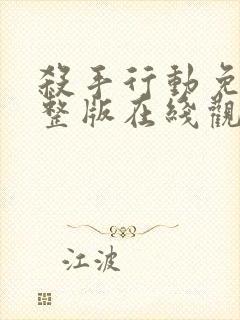 殺手行動免
整版在綫觀
江波